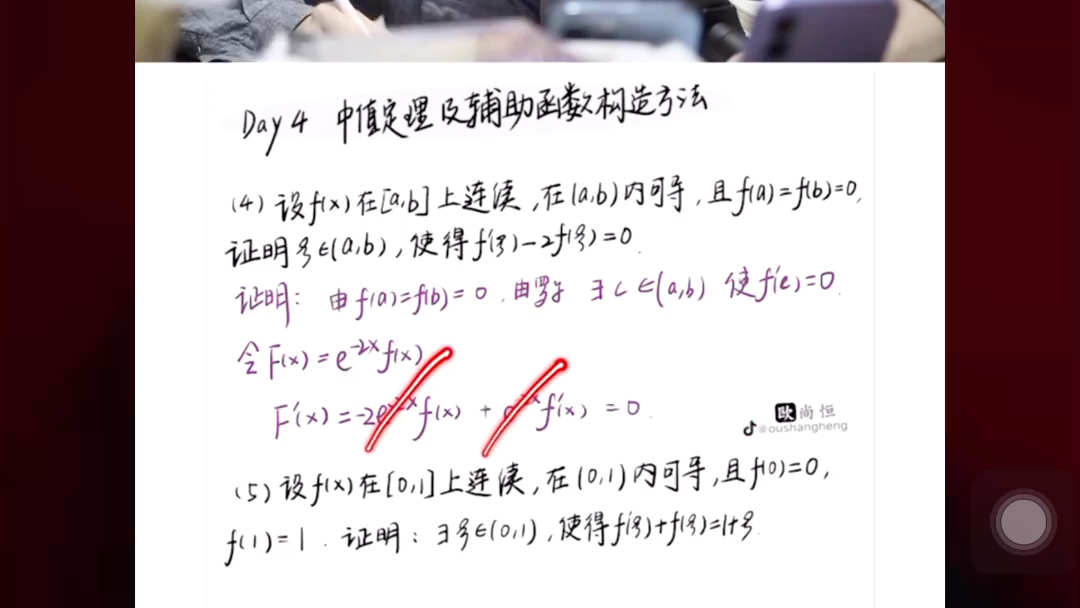 Day 4 中值定理及辅助函数构造方法
(4) 设f(x)在[a,b]上连续,在(a,b)内可导,且f(a)=f(b)=0,
证明ξ∈(a,b),使得f'(ξ)-2f(ξ)=0.
证明: 由f(a)=f(b)=0.由罗尔 ∃ c∈(a,b) 使f'(c)=0.
令F(x)=e^{-2x}f(x)
F'(x)=-2e^{-2x}f(x) + e^{-2x}f'(x) =0.
欧尚恒
@oushangheng
(5) 设f(x)在[0,1]上连续,在(0,1)内可导,且f(0)=0,
f(1)=1. 证明: ∃ξ∈(0,1),使得f'(ξ)+f(ξ)=1+ξ.